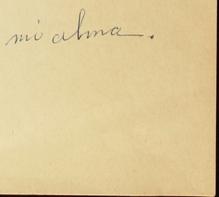 mi alma.